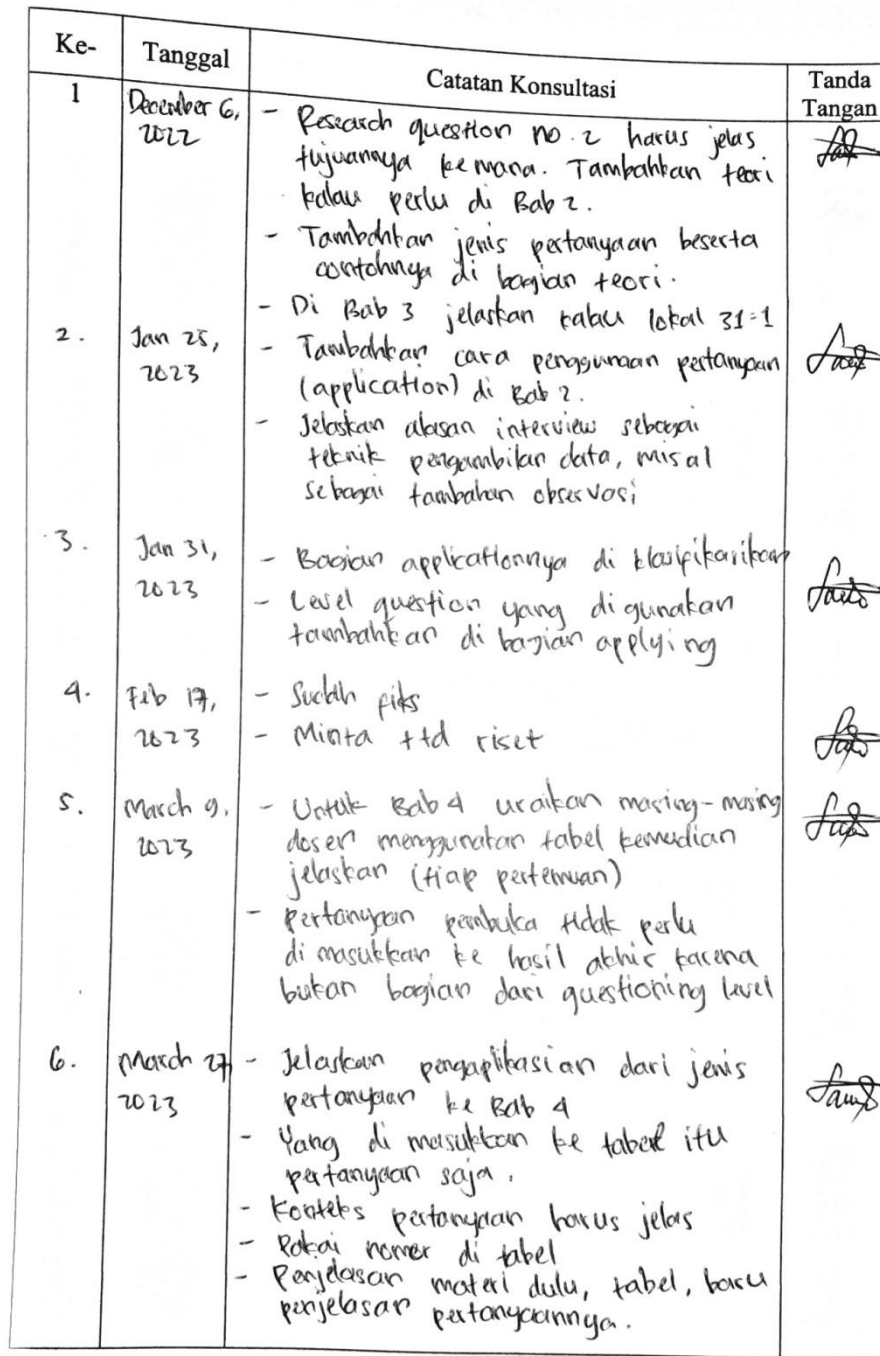 Ke-
Tanggal
Catatan Konsultasi
Tanda
Tangan
1
December 6,
2022
- Research question no. 2 harus jelas
tujuannya kemana. Tambahkan teori
kalau perlu di Bab 2.
- Tambahkan jenis pertanyaan beserta
contohnya di bagian teori.
- Di Bab 3 jelaskan kalau lokal 31=1
2.
Jan 25,
2023
- Tambahkan cara penggunaan pertanyaan
(application) di Bab 2.
- Jelaskan alasan interview sebagai
teknik pengambilan data, misal
sebagai tambahan observasi
3.
Jan 31,
2023
- Bagian applicationnya di klasifikasikan
- Level question yang di gunakan
tambahkan di bagian applying
4.
Feb 17,
2023
- Sudah fiks
- Minta ttd riset
5.
March 9,
2023
- Untuk Bab 4 uraikan masing-masing
dosen menggunakan tabel kemudian
jelaskan (tiap pertemuan)
- Pertanyaan pembuka tidak perlu
di masukkan ke hasil akhir karena
bukan bagian dari questioning level
6.
March 27
2023
- Jelaskan pengaplikasian dari jenis
pertanyaan ke Bab 4
- Yang di masukkan ke tabel itu
pertanyaan saja.
- Konteks pertanyaan harus jelas
- Pakai nomer di tabel
- Penjelasan materi dulu, tabel, baru
penjelasan pertanyaannya.